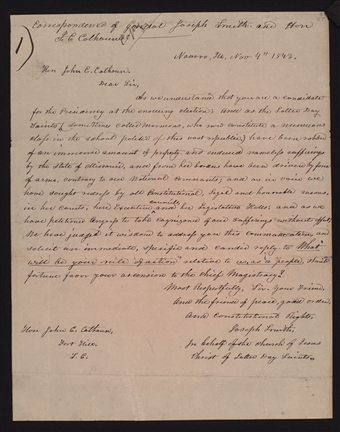 1)
Correspondence of General Joseph Smith and Hon
J. C. Calhoun
Nauvoo, Ill, Nov 4th 1843.
Hon John C. Calhoun.
Dear Sir,
As we understand that you are a candidate
for the Presidency at the ensuing election; and as the Latter Day
Saints, (sometimes called Mormons, who now constitute a numerous
class in the school politic of this vast republic,) have been robbed
of an immense amount of property and endured nameless sufferings
by the State of Missouri, and from her borders have been driven by force
of arms, contrary to our National covenants; and as in vain we
have sought redress by all Constitutional, legal and honorable means,
in her Courts, her Executive councils, and her Legislative Halls; and as we
have petitioned Congress to take cognizance of our sufferings without effect,
We have judged it wisdom to address you this communication, and
solicit an immediate, specific and candid reply to "What
will be your rule of action" relative to us as a people, should
fortune favor your ascension to the Chief Magistracy?
Most Respectfully, Sir, Your Friend
and the friend of peace, good order
and Constitutional Rights,
Joseph Smith.
Hon John C. Calhoun,
In behalf of the church of Jesus
Fort Hill.
Christ of Latter Day Saints
S. C.